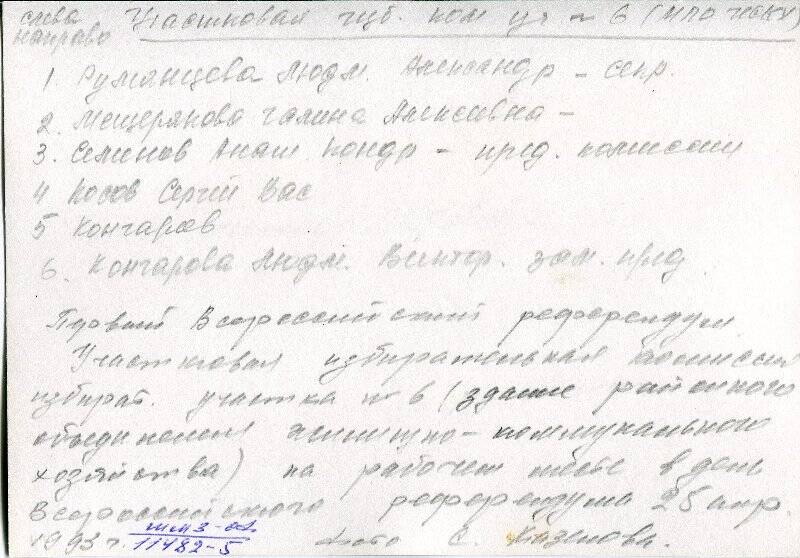 слева направо
Участковая изб. ком уч № 6
1. Румянцева Людм. Александр – секр.
2. Мещерякова Галина Алексеевна –
3. Семенов Анат. Кондр – пред. комиссии
4 Носов Сергей Вас
5 Кончаров
6. Кончарова Людм. Виктор. зам. пред.
Первый Всероссийский референдум
Участковая избирательная комиссия
избират. участка № 6 (здание районного
объединения жилищно-коммунального
хозяйства) на рабочем месте в день
Всероссийского референдума 25 апр.
1993 г. фото С. Казенова.
11482-5